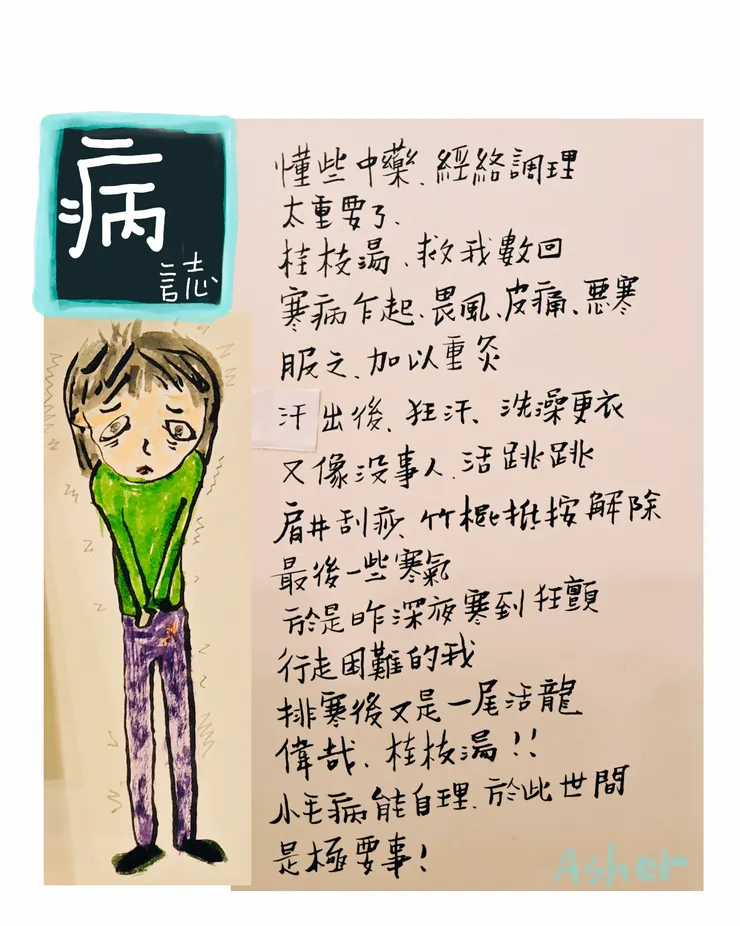 病
誌
懂些中藥、經絡調理
太重要了、
桂枝湯、救我數回
寒病乍起、畏風、皮痛、惡寒
服之、加以重灸
汗出後、狂汗、洗澡更衣
又像没事人、活跳跳
肩井刮痧、竹棍推按解除
最後一些寒氣
於是昨深夜寒到狂顫
行走困難的我
排寒後又是一尾活龍
偉哉、桂枝湯!!
小毛病能自理、於此世間
是極要事!
Asher